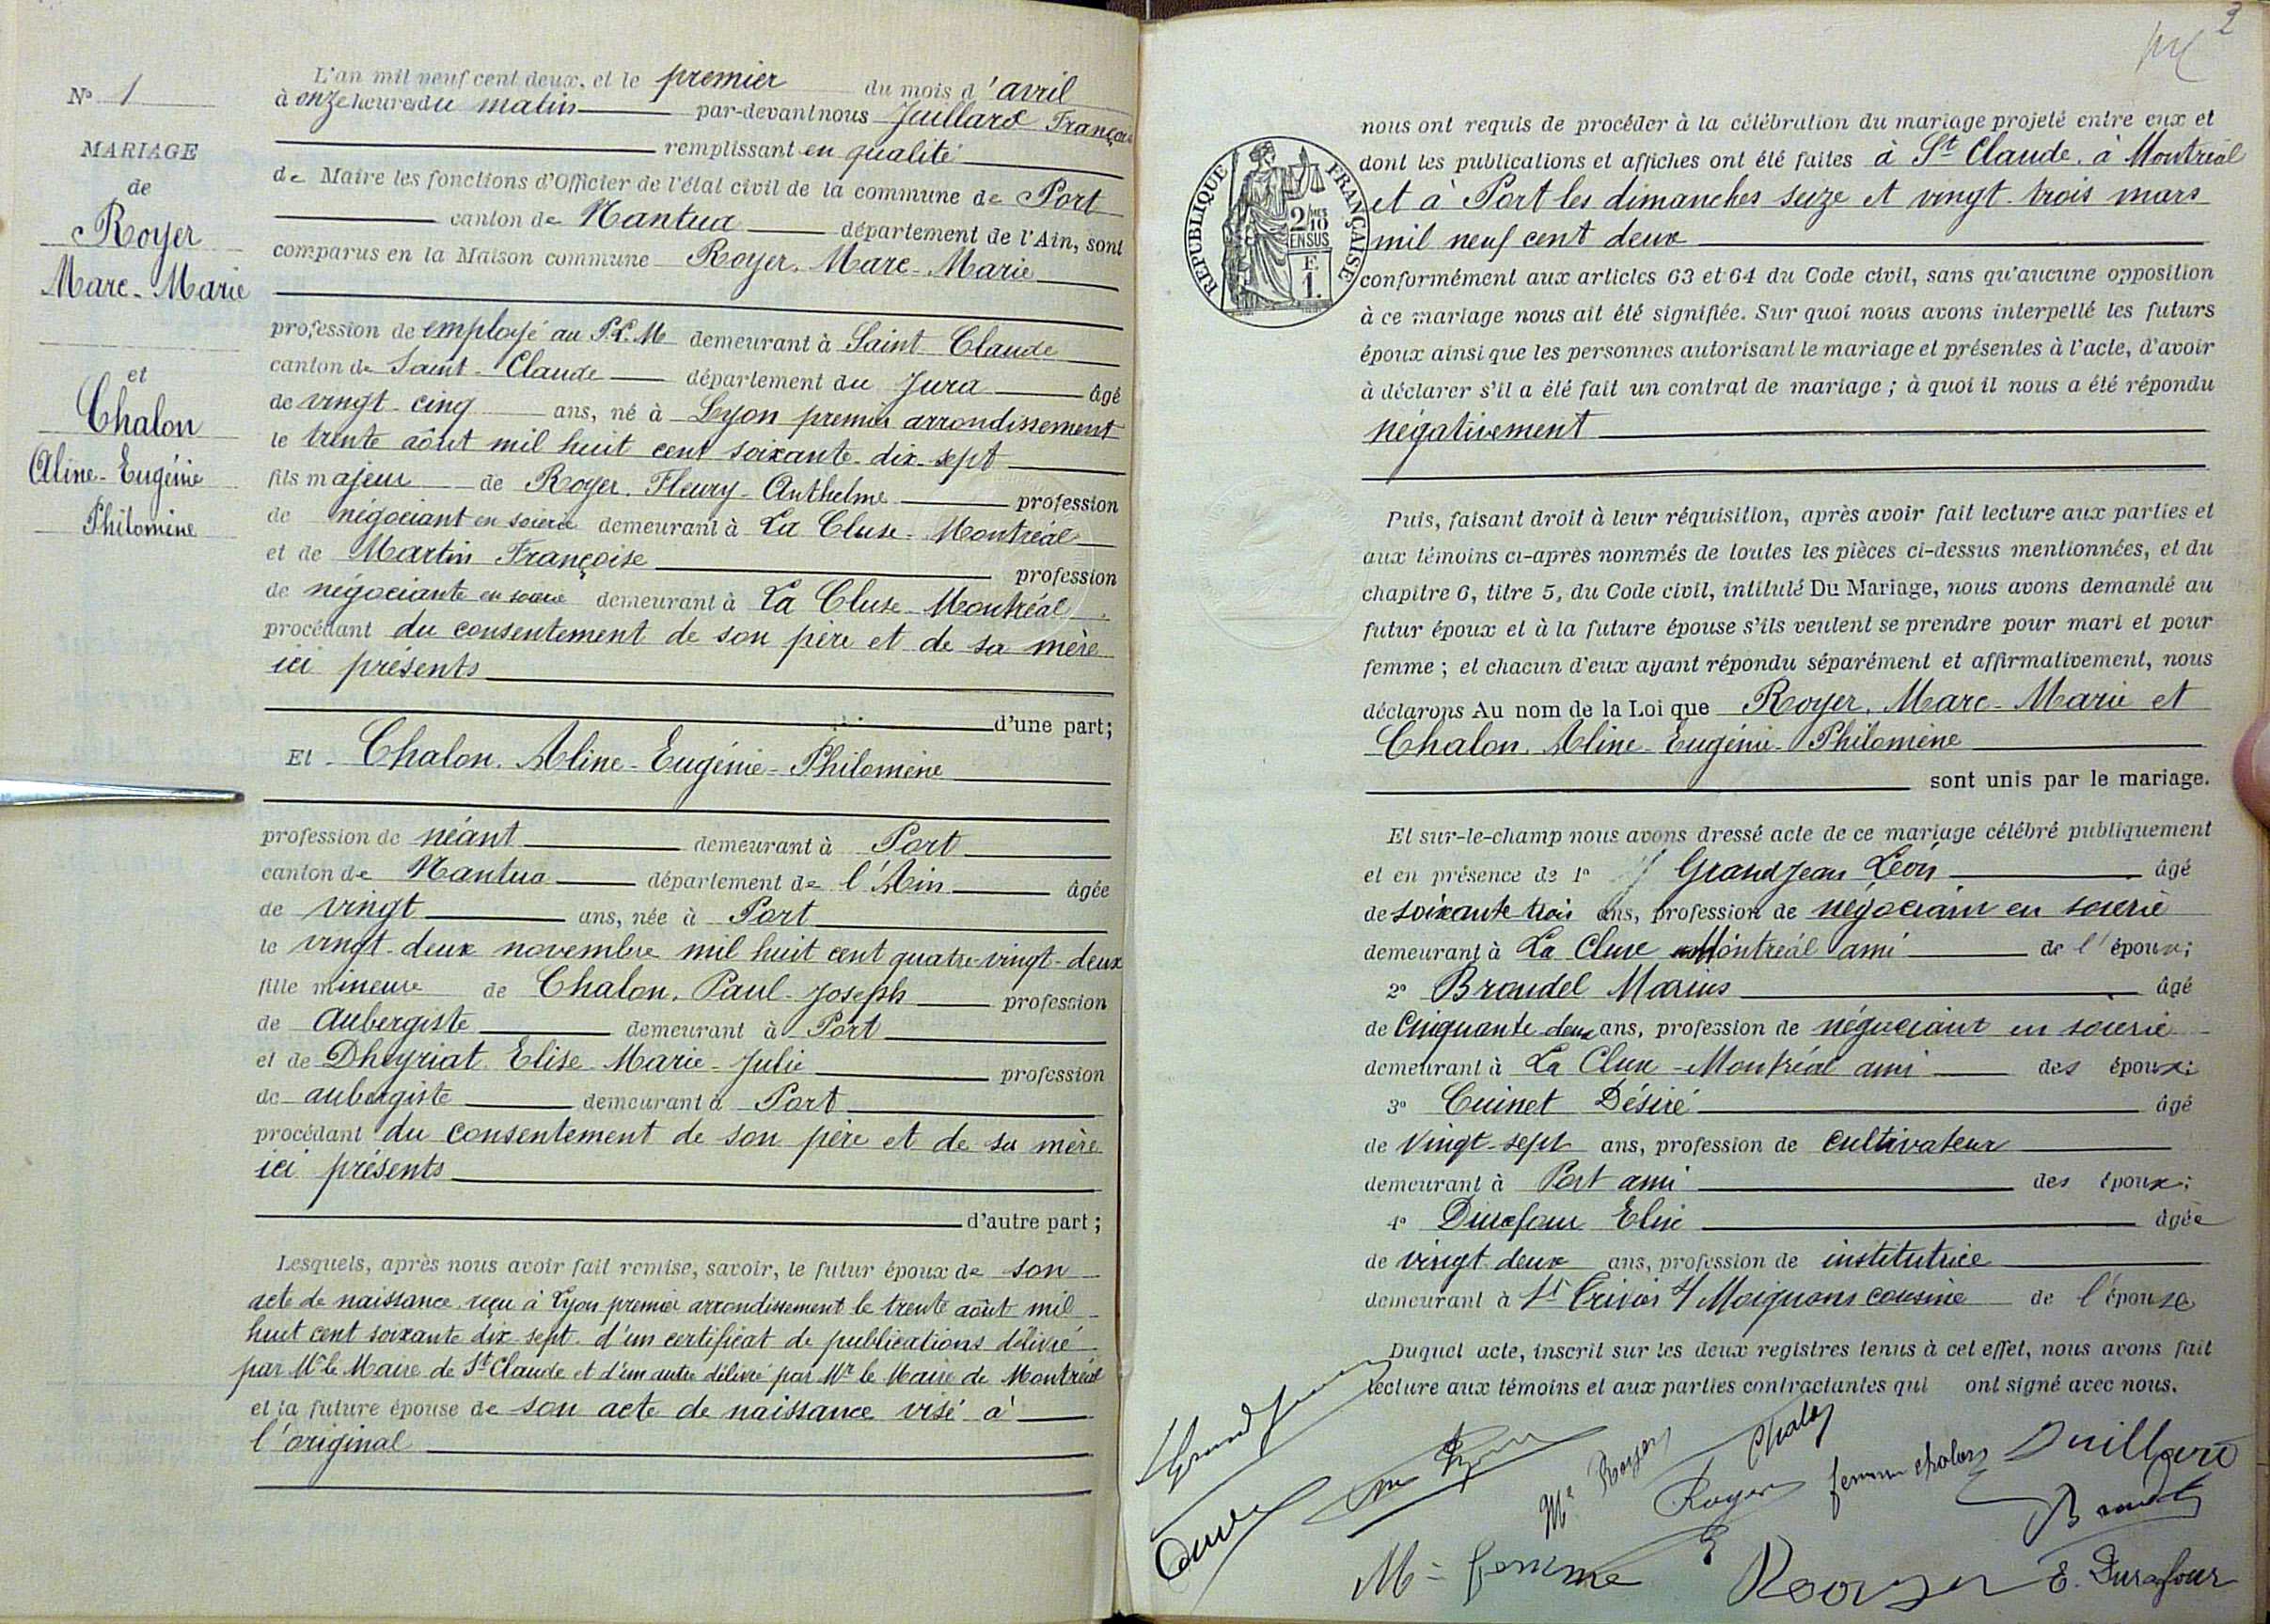 N° 1
MARIAGE
de
Royer
Marc-Marie
et
Chalon
Aline-Eugénie
Philomène
L'an mil neuf cent deux, et le premier du mois d'avril
à onze heures du matin par-devant nous Juillard François
remplissant en qualité
de Maire les fonctions d'Officier de l'état civil de la commune de Port
canton de Nantua département de l'Ain, sont
comparus en la Maison commune Royer, Marc-Marie
profession de employé au P.L.M demeurant à Saint Claude
canton de Saint-Claude département du Jura âgé
de vingt-cinq ans, né à Lyon premier arrondissement
le trente août mil huit cent soixante-dix-sept
fils majeur de Royer, Fleury-Anthelme profession
de négociant en soierie demeurant à La Cluse-Montréal
et de Martin Françoise profession
de négociante en soierie demeurant à La Cluse-Montréal
procédant du consentement de son père et de sa mère
ici présents
d'une part;
Et Chalon, Aline-Eugénie-Philomène
profession de néant demeurant à Port
canton de Nantua département de l'Ain âgée
de vingt ans, née à Port
le vingt-deux novembre mil huit cent quatre-vingt-deux
fille mineure de Chalon, Paul-Joseph profession
de aubergiste demeurant à Port
et de Dheyriat Elise-Marie-Julie profession
de aubergiste demeurant à Port
procédant du consentement de son père et de sa mère
ici présents
d'autre part;
Lesquels, après nous avoir fait remise, savoir, le futur époux de son
acte de naissance reçu à Lyon premier arrondissement le trente août mil
huit cent soixante dix-sept d'un certificat de publications délivré
par Mr le Maire de St Claude et d'un autre délivré par Mr le Maire de Montréal
et la future épouse de son acte de naissance visé à
l'original
2
RÉPUBLIQUE FRANÇAISE
2/10
MES
EN SUS
F.
1.
nous ont requis de procéder à la célébration du mariage projeté entre eux et
dont les publications et affiches ont été faites à St Claude, à Montréal
et à Port les dimanches seize et vingt-trois mars
mil neuf cent deux
conformément aux articles 63 et 64 du Code civil, sans qu'aucune opposition
à ce mariage nous ait été signifiée. Sur quoi nous avons interpellé les futurs
époux ainsi que les personnes autorisant le mariage et présentes à l'acte, d'avoir
à déclarer s'il a été fait un contrat de mariage; à quoi il nous a été répondu
négativement
Puis, faisant droit à leur réquisition, après avoir fait lecture aux parties et
aux témoins ci-après nommés de toutes les pièces ci-dessus mentionnées, et du
chapitre 6, titre 5, du Code civil, intitulé Du Mariage, nous avons demandé au
futur époux et à la future épouse s'ils veulent se prendre pour mari et pour
femme; et chacun d'eux ayant répondu séparément et affirmativement, nous
déclarons Au nom de la Loi que Royer, Marc-Marie et
Chalon, Aline-Eugénie-Philomène
sont unis par le mariage.
Et sur-le-champ nous avons dressé acte de ce mariage célébré publiquement
et en présence de 1° Grandjean Léon âgé
de soixante trois ans, profession de négociant en soierie
demeurant à La Cluse Montréal ami de l'époux;
2° Brandel Marius âgé
de cinquante-deux ans, profession de négociant en soierie
demeurant à La Cluse-Montréal ami des époux;
3° Cuinet Désiré âgé
de vingt-sept ans, profession de cultivateur
demeurant à Port ami des époux;
4° Durafour Elise âgée
de vingt deux ans, profession de institutrice
demeurant à St Trivier s/ Moignans cousine de l'épouse
Duquel acte, inscrit sur les deux registres tenus à cet effet, nous avons fait
lecture aux témoins et aux parties contractantes qui ont signé avec nous.
Grandjean
Royer
Chalon
femme chalon
Juillard
Me Royer
Brandel
M= femme Rooyer
E. Durafour